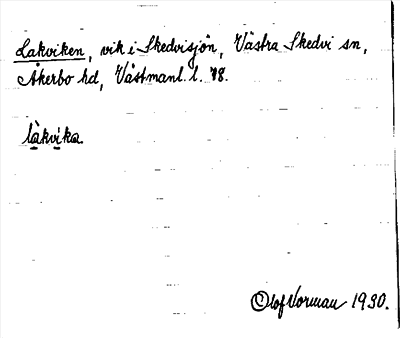 Lakviken, vik i Skedvisjön, Västra Skedvi sn,
Åkerbo hd, Västmanl. l. 98.
làkvika.
Olof Vorman 1930.